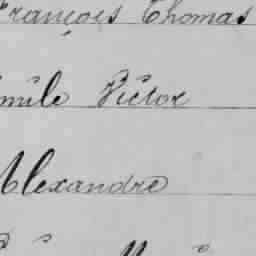 François Thomas
Emile Victor
Alexandre